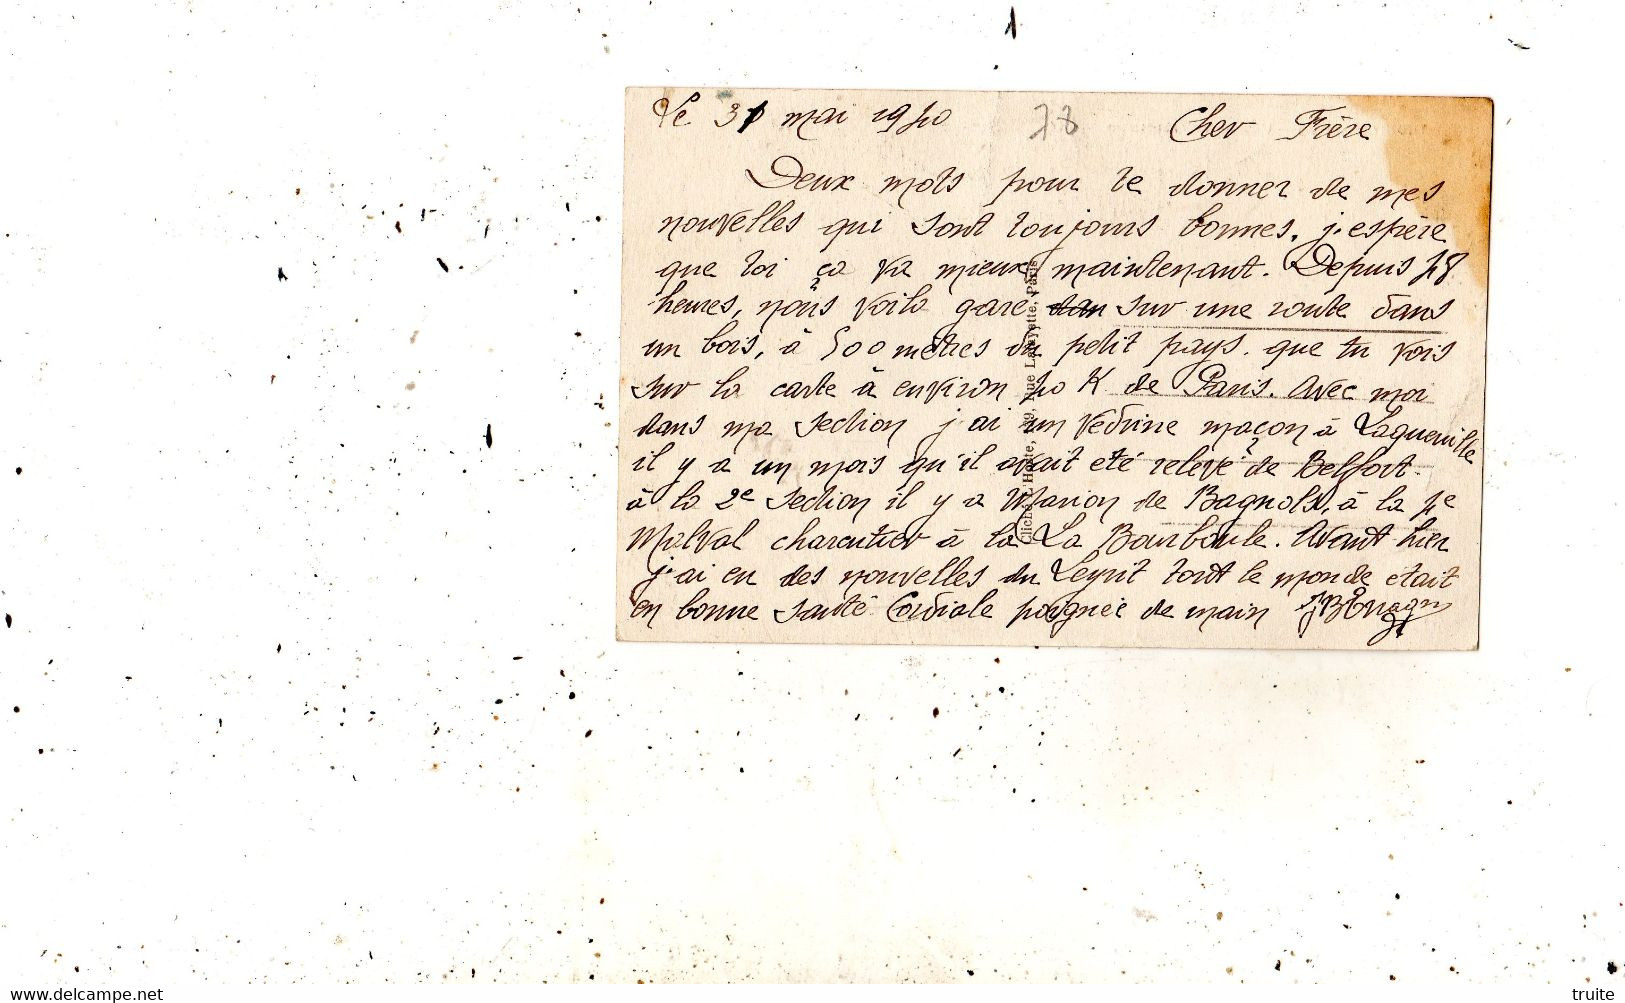 Le 31 mai 1940 78 Cher Frère
Deux mots pour te donner de mes
nouvelles qui sont toujours bonnes, j'espère
que toi ça va mieux maintenant. Depuis 48
heures, nous voila garé dan sur une route dans
un bois, à 500 mètres du petit pays. que tu vois
sur la carte à environ 40 K de Paris. Avec moi
dans ma section j'ai un Vedrine maçon à Laqueuille
il y a un mois qu'il avait eté relevé de Belfort.
à la 2e section il y a Marion de Bagnols, à la 4e
Malval charcutier à la La Bourboule. Avant hier
j'ai eu des nouvelles du Leyrit tout le monde etait
en bonne santé. Cordiale poignée de main
Cliché L'Hoste, Rue Lafayette, Paris
www.delcampe.net
truite